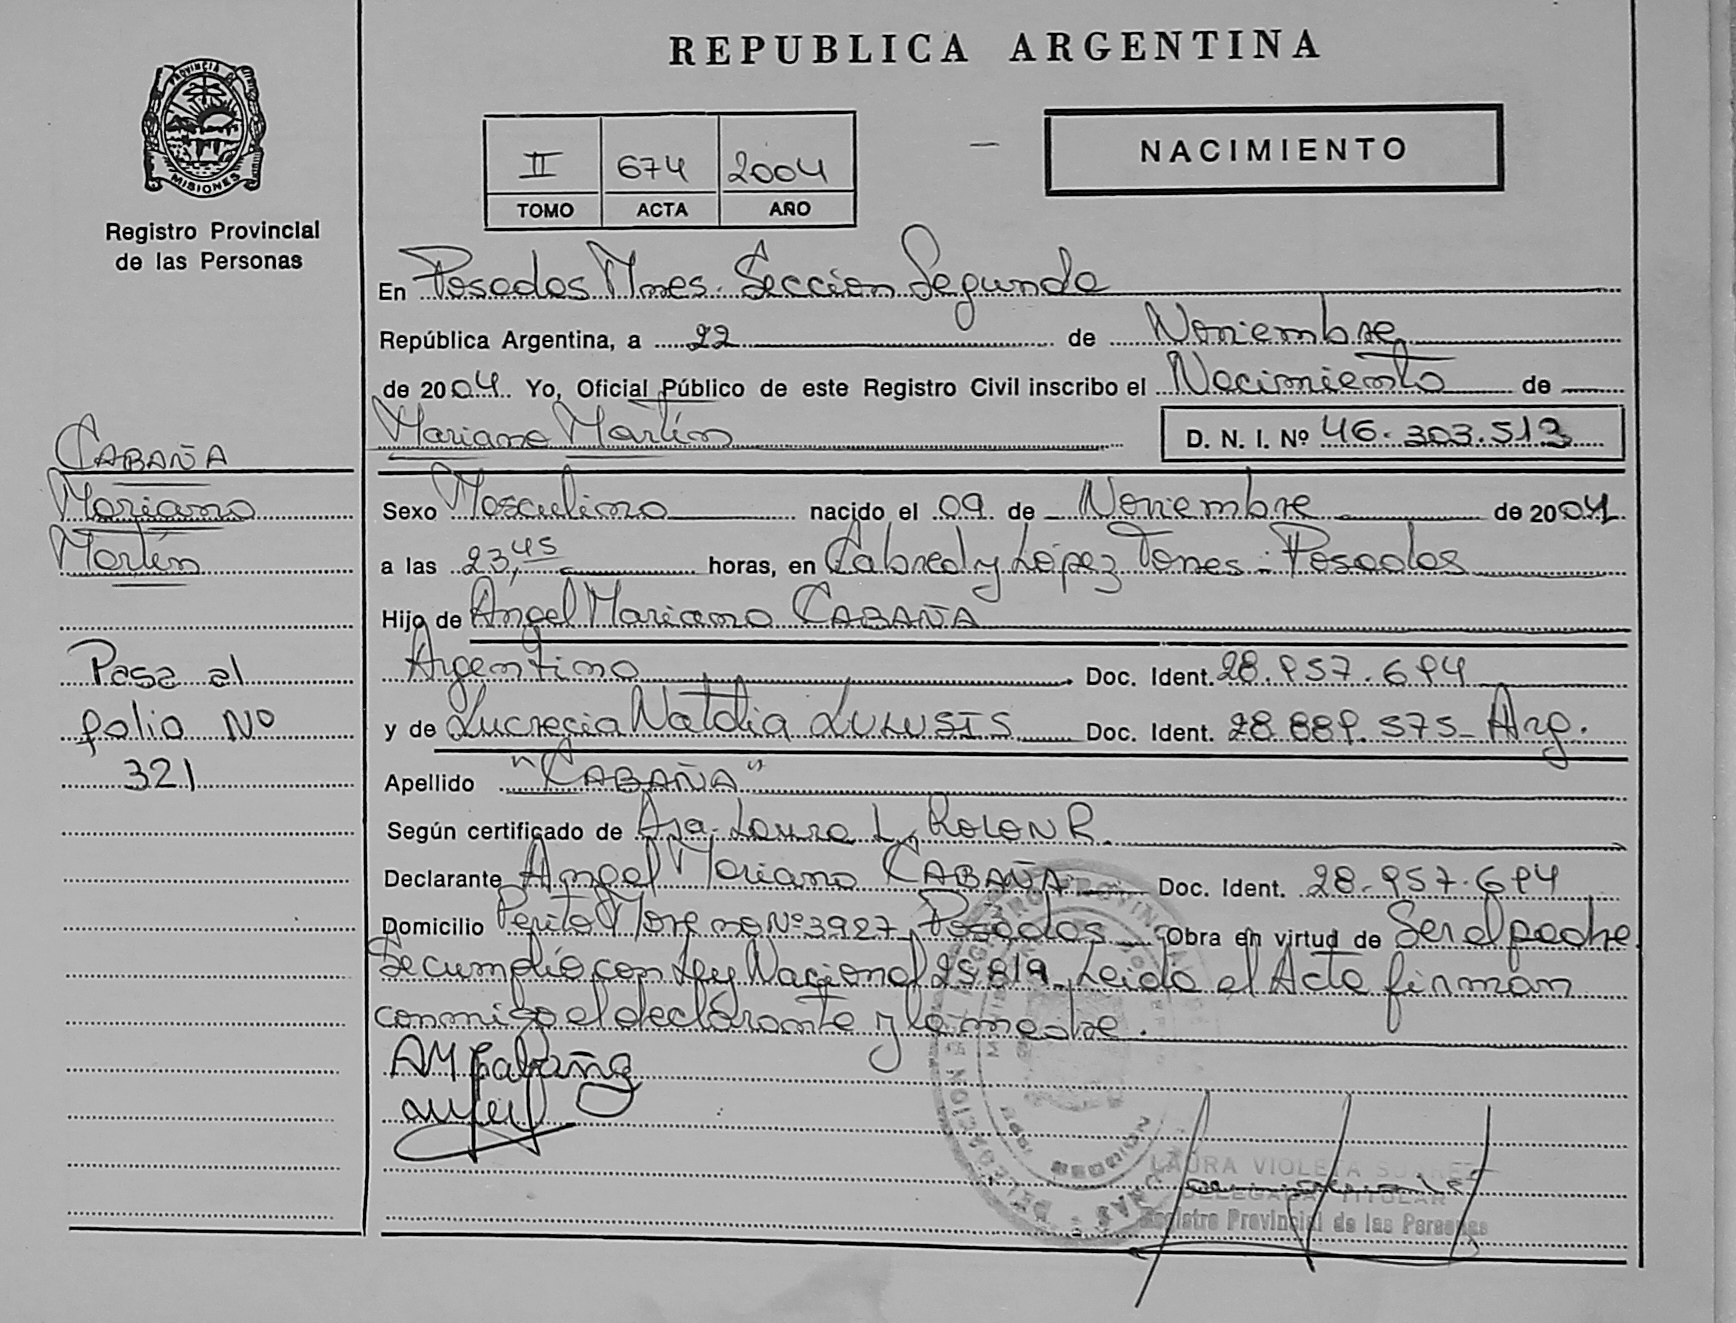 REPUBLICA ARGENTINA
PROVINCIA DE
MISIONES
Registro Provincial
de las Personas
II 674 2004
TOMO ACTA AÑO
NACIMIENTO
En Posadas Mnes. Sección Segunda
República Argentina, a 22 de Noviembre
de 2004. Yo, Oficial Público de este Registro Civil inscribo el Nacimiento de
Mariano Martín
D. N. I. Nº 46.303.513
CABAÑA
Mariano
Martín
Pasa al
folio Nº
321
Sexo Masculino nacido el 09 de Noviembre de 2004
a las 23,45 horas, en Cabred y López Torres - Posadas
Hijo de Angel Mariano CABAÑA
Argentino Doc. Ident. 28.957.694
y de Lucrecia Natalia Doc. Ident. 28.889.575 - Arg.
Apellido "CABAÑA"
Según certificado de Laura L. ROLON R.
Declarante Angel Mariano CABAÑA Doc. Ident. 28.957.694
Domicilio Perito Moreno Nº 3927, Posadas Obra en virtud de Ser el padre
Se cumplió con Ley Nacional 25819. Leida el Acta firman
conmigo el declarante y la madre.
AM Cabaña
LAURA VIOLETA SUAREZ
DELEGADA TITULAR
Registro Provincial de las Personas